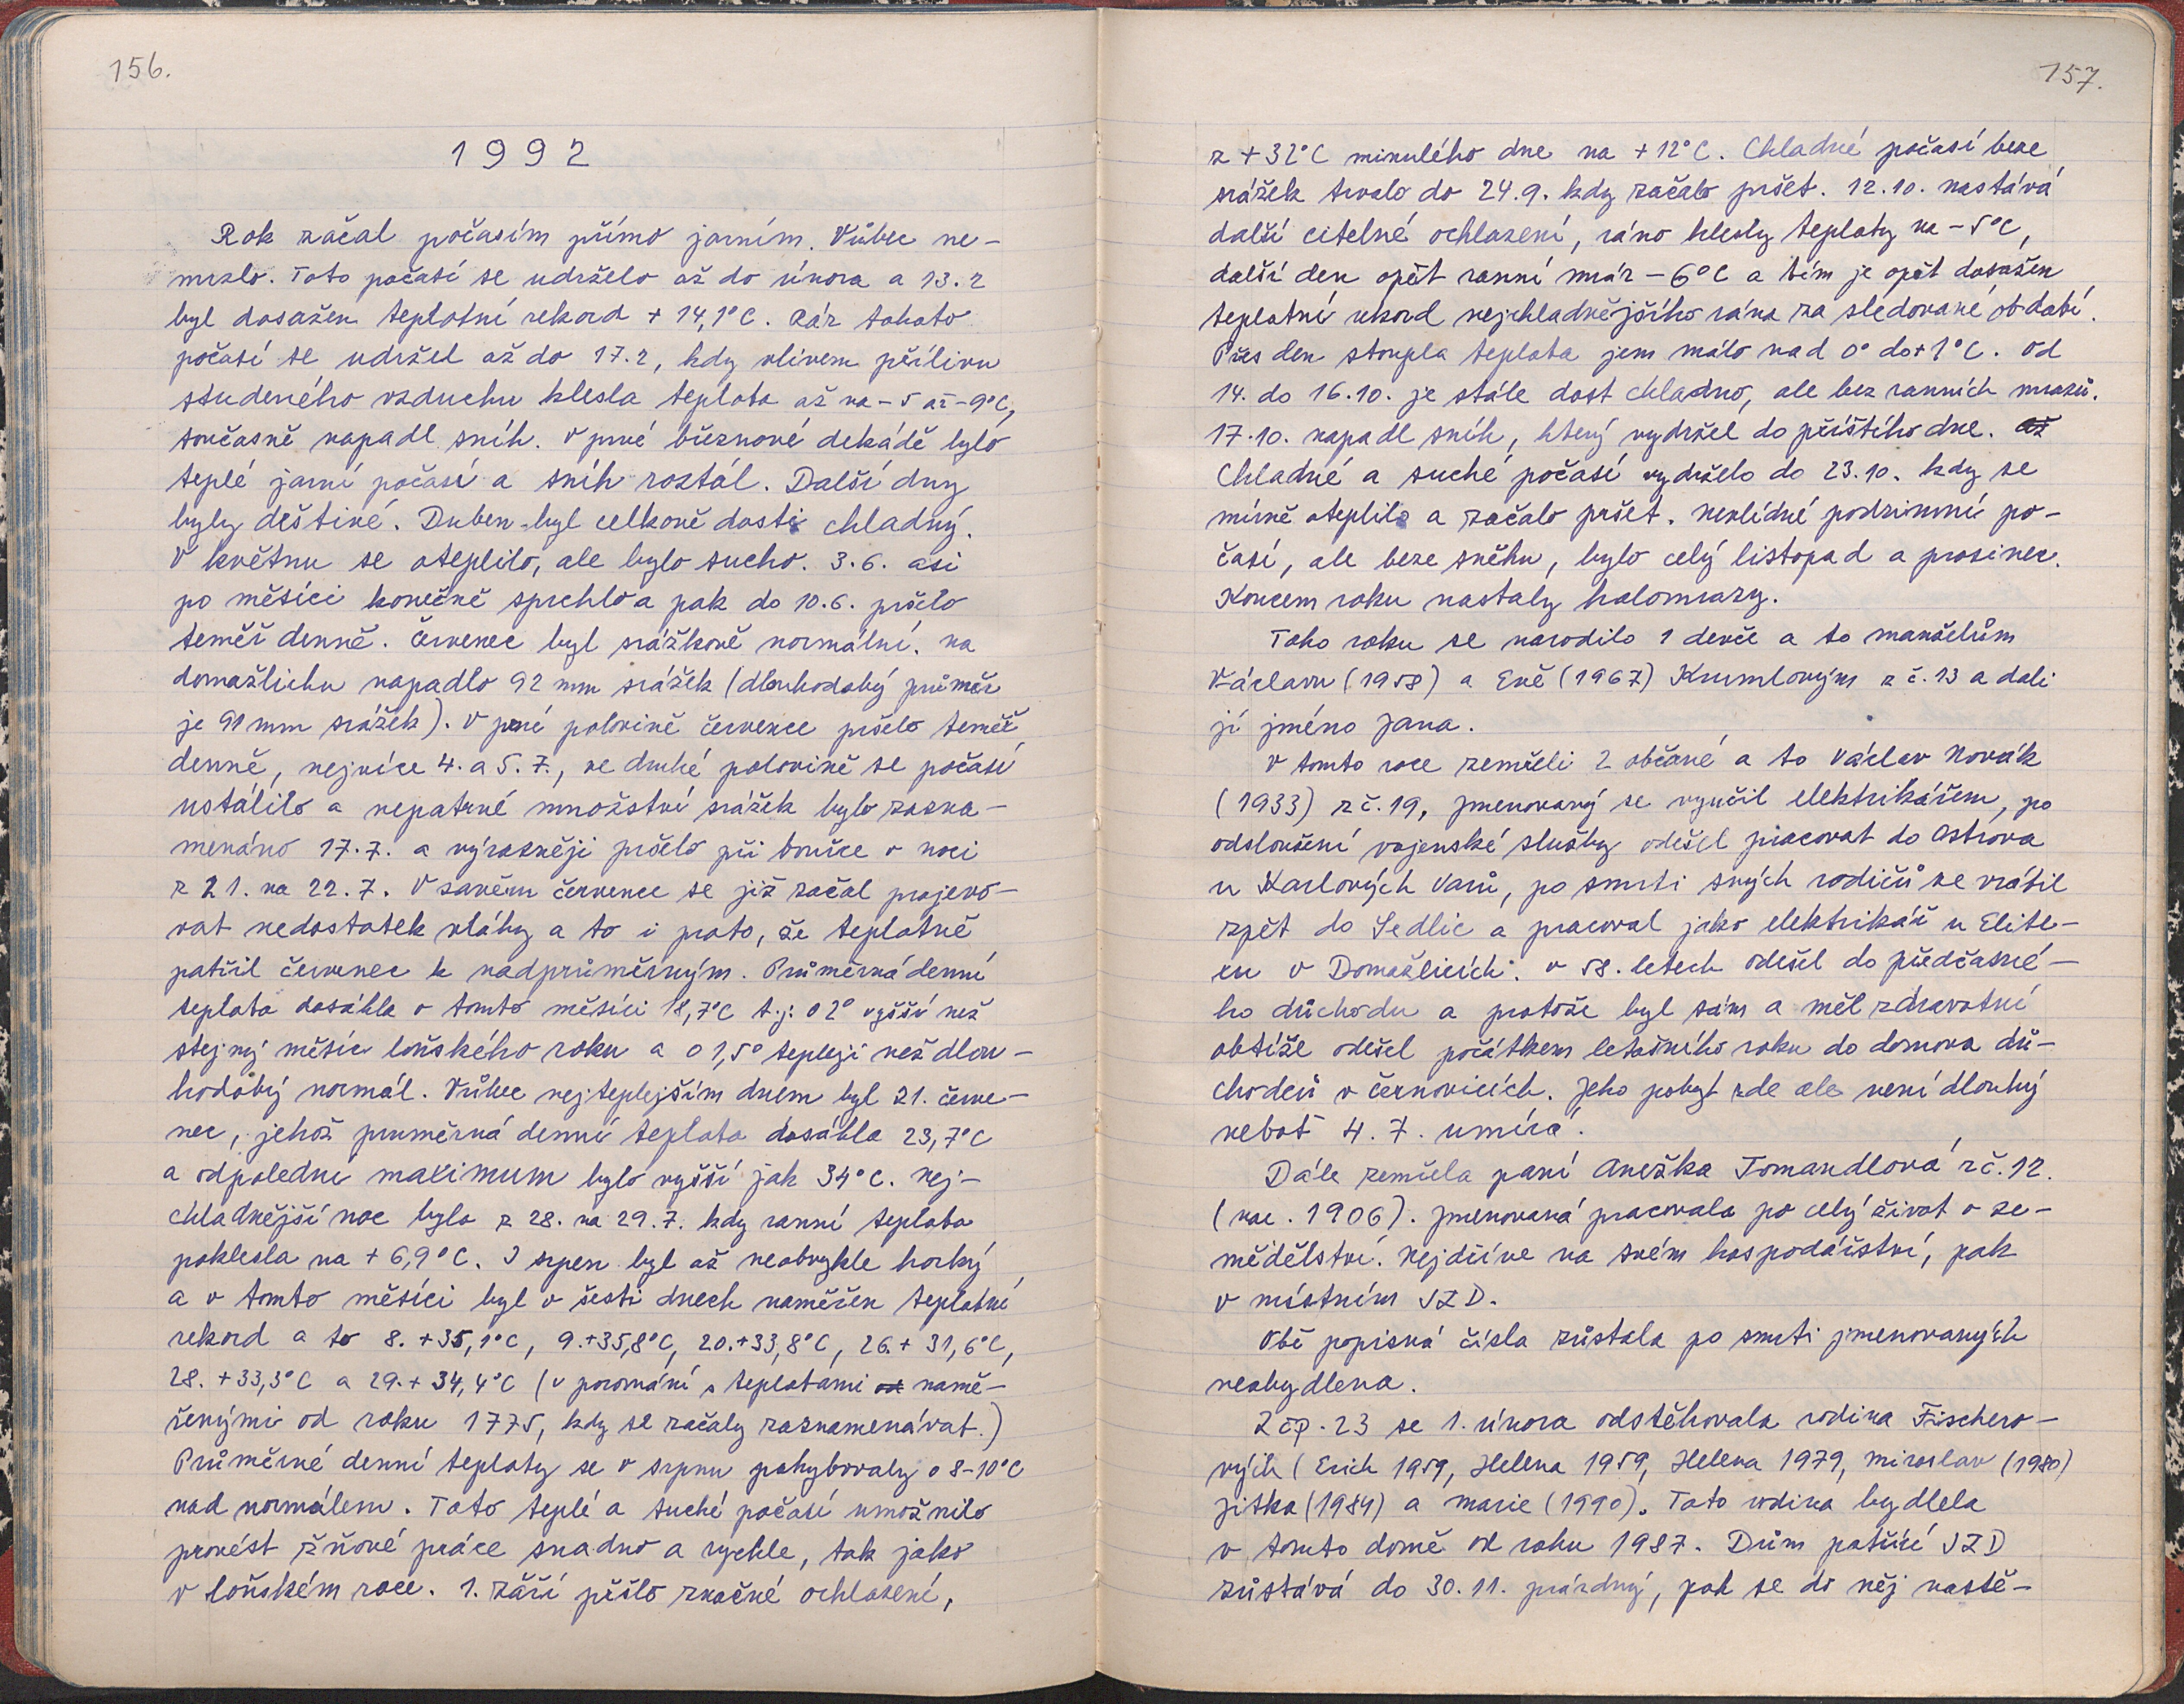 156.
1992
Rok začal počasím přímo jarním. Vůbec ne-
mrzlo. Toto počasí se udrželo až do února a 13.2
byl dosažen teplotní rekord + 14,1°C. Ráz tohoto
počasí se udržel až do 17.2, kdy vlivem přílivu
studeného vzduchu klesla teplota až na - 5 až - 9°C,
současně napadl sníh. V prvé březnové dekádě bylo
teplé jarní počasí a sníh roztál. Další dny
byly deštivé. Duben byl celkově dosti chladný.
V květnu se oteplilo, ale bylo sucho. 3.6. asi
po měsíci konečně sprchlo a pak do 10.6. pršelo
téměř denně. Červenec byl srážkově normální. na
domažlicku napadlo 92 mm srážek (dlouhodobý průměr
je 91 mm srážek). V prvé polovině července pršelo téměř
denně, nejvíce 4. a 5. 7., ve druhé polovině se počasí
ustálilo a nepatrné množství srážek bylo zazna-
menáno 17.7. a výrazněji pršelo při bouřce v noci
z 21. na 22.7. V závěru července se již začal projevo-
vat nedostatek vláhy a to i proto, že teplotně
patřil červenec k nadprůměrným. Průměrná denní
teplota dosáhla v tomto měsíci 18,7°C t.j. o 2° vyšší než
stejný měsíc loňského roku a o 1,5° teplejí než dlou-
hodobý normál. Vůbec nejteplejším dnem byl 21. červe-
nec, jehož průměrná denní teplota dosáhla 23,7°C
a odpoledne maximum bylo vyšší jak 34°C. Nej-
chladnější noc byla z 28. na 29.7. kdy ranní teplota
poklesla na + 6,9°C. I srpen byl až neobvykle horký
a v tomto měsíci byl v šesti dnech naměřen teplotní
rekord a to 8. +35,1°C, 9. +35,8°C, 20. +33,8°C, 26. + 31,6°C,
28. +33,3°C a 29. + 34,4°C (v porovnání s teplotami od namě-
řenými od roku 1775, kdy se začaly zaznamenávat.)
Průměrné denní teploty se v srpnu pohybovaly o 8-10°C
nad normálem. Toto teplé a suché počasí umožnilo
provést žňové práce snadno a rychle, tak jako
v loňském roce. 1. září přišlo značné ochlazení,
157.
z +32°C minulého dne na +12°C. Chladné počasí beze
srážek trvalo do 24.9. kdy začalo pršet. 12.10. nastává
další citelné ochlazení, ráno klesly teploty na -5°C,
další den opět ranní mráz - 6°C a tím je opět dosažen
teplotní rekord nejchladnějšího rána za sledované období.
Přes den stoupla teplota jem málo nad 0° do +1°C. Od
14. do 16.10. je stále dost chladno, ale bez ranních mrazů.
17.10. napadl sníh, který vydržel do příštího dne. až
Chladné a suché počasí vydrželo do 23.10. kdy se
mírně oteplilo a začalo pršet. nevlídné podzimní po-
časí, ale beze sněhu, bylo celý listopad a prosinec.
Koncem roku nastaly holomrazy.
Toho roku se narodilo 1 děvče a to manželům
Václavu (1958) a Evě (1967) Krumlovým z č. 13 a dali
jí jméno Jana.
V tomto roce zemřeli 2 občané a to Václav Novák
(1933) z č. 19, jmenovaný se vyučil elektrikářem, po
odsloužení vojenské služby odešel pracovat do Ostrova
u Karlových Varů, po smrti svých rodičů se vrátil
zpět do Sedlic a pracoval jako elektrikář u Elite-
xu v Domažlicích. v 58. letech odešel do předčasné-
ho důchodu a protože byl sám a měl zdravotní
obtíže odešel počátkem letošního roku do domova dů-
chodců v Černovicích. Jeho pobyt zde ale není dlouhý
neboť 4. 7. umírá.
Dále zemřela paní Anežka Tomandlová z č. 12.
(nar. 1906). Jmenovaná pracovala po celý život v ze-
mědělství. Nejdříve na svém hospodářství, pak
v místním JZD.
Obě popisná čísla zůstala po smrti jmenovaných
neobydlena.
Z čp. 23 se 1. února odstěhovala rodina Fischero-
vých (Erich 1959, Helena 1959, Helena 1979, Miroslav (1980)
Jitka (1984) a Marie (1990). Tato rodina bydlela
v tomto domě od roku 1987. Dům patřící JZD
zůstává do 30.11. prázdný, pak se do něj nastě-